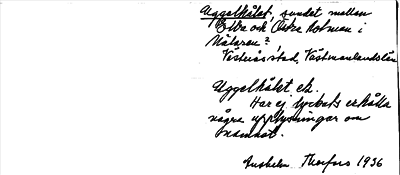 Uggelhålet, sundet mellan
Ettra och Östra Holmen i
Mälaren?,
Västerås stad, Västmanlands län
Uggelhålet ek.
Har ej lyckats erhålla
några upplysningar om
namnet.
Thorfors 1936